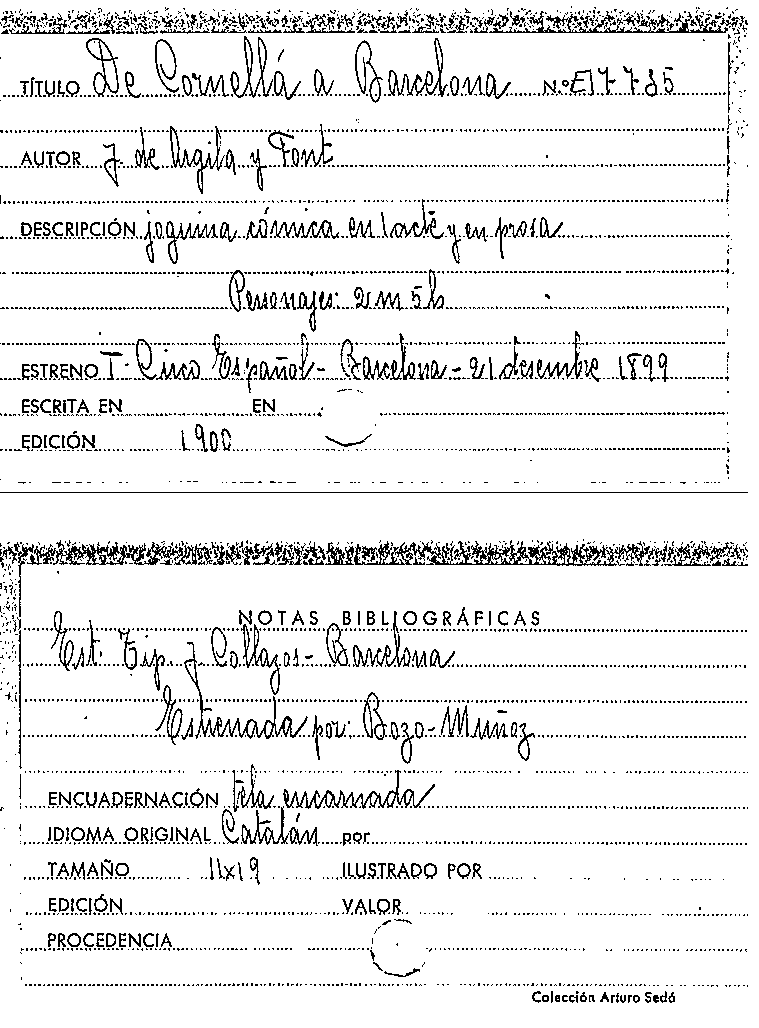 TÍTULO De Cornellá a Barcelona N.º E17-7-85
AUTOR J. de Argila y Font
DESCRIPCIÓN joguina cómica en 1 acte y en prosa
Personajes: 2 m 5 h
ESTRENO T. Circo Español - Barcelona - 21 desembre 1899
ESCRITA EN EN
EDICIÓN 1900
NOTAS BIBLIOGRÁFICAS
Est. Tip. J. Collazos - Barcelona
Estrenada por: Bozo - Muñoz
ENCUADERNACIÓN tela encarnada
IDIOMA ORIGINAL Catalán por
TAMAÑO 11x19 ILUSTRADO POR
EDICIÓN VALOR
PROCEDENCIA
Colección Arturo Sedó